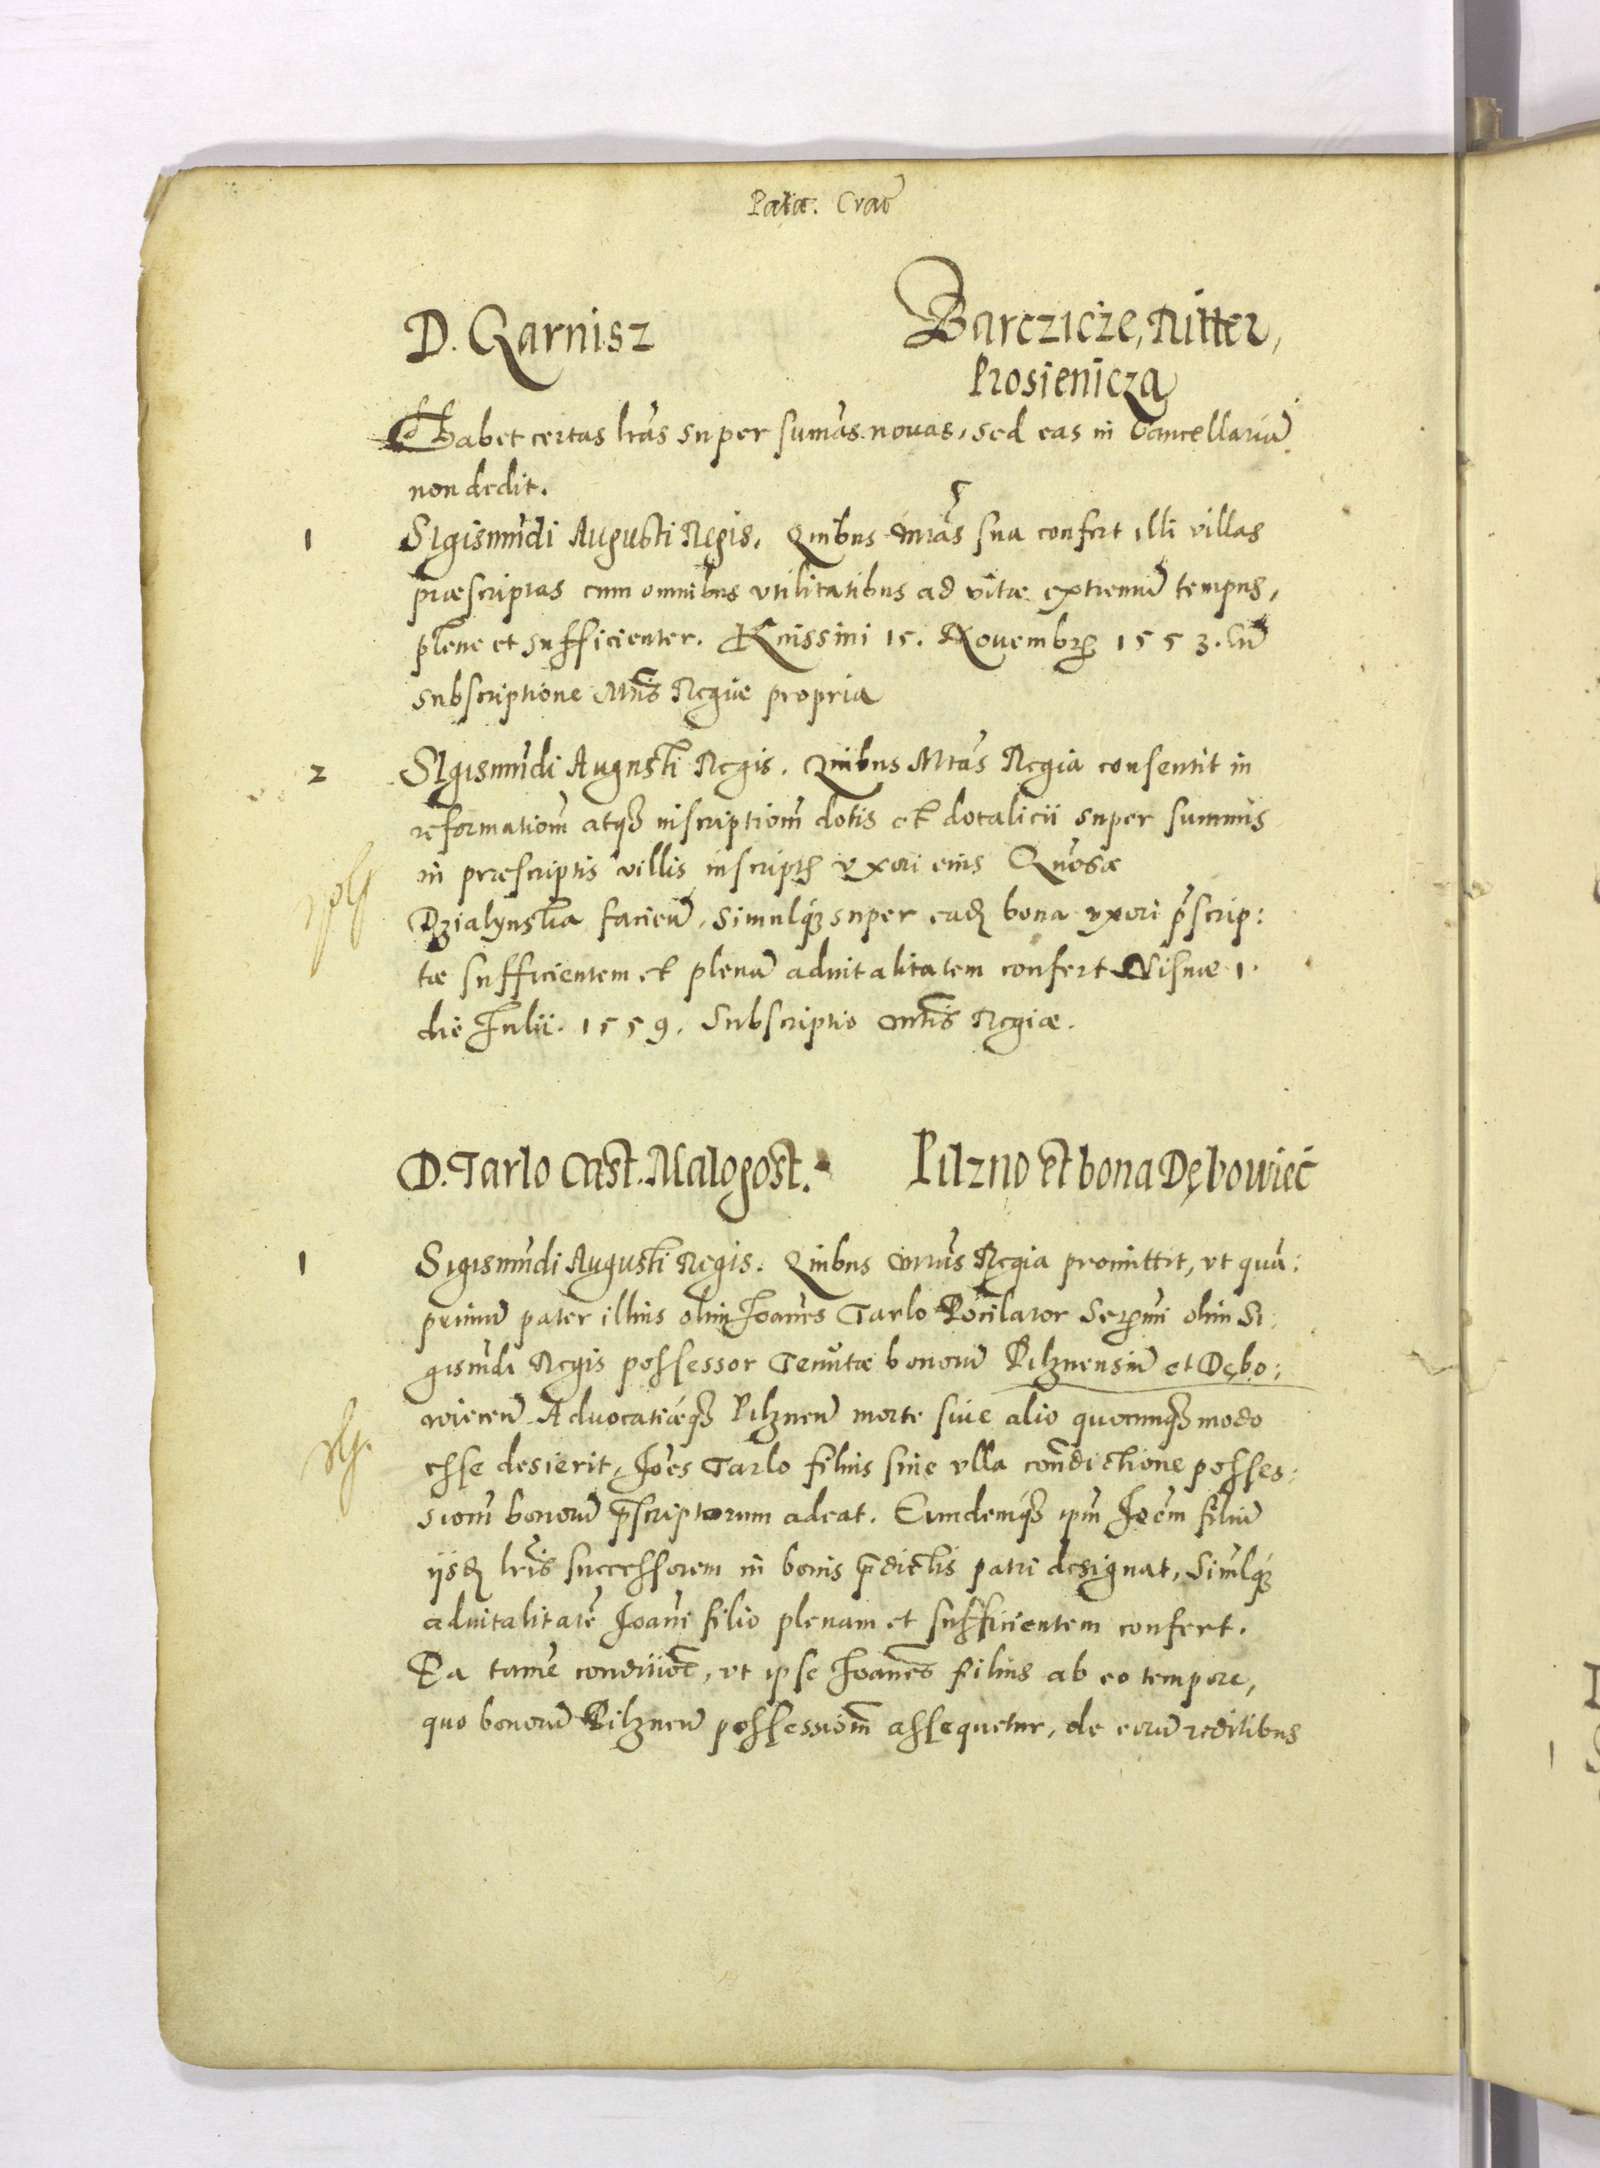 Palat. Crac
D. Garnisz
Barczicze, Ritter,
Prosienicza
Habet certas lras super sumas nouas, sed eas in Cancellariã
non dedit.
1 Sigismũdi Augusti Regis. Quibus Mtas sua confert illi villas
præscriptas cum omnibus vtilitatibus ad vitæ extremũ tempus,
plene et sufficienter. Knissini 15. Novembr 1553. Cũ
subscriptione Mtis Regiæ propria
2 Sigismũdi Augusti Regis. Quibus Mtas Regia consentit in
reformationẽ atq inscriptionẽ dotis et dotalicii super summis
in præscriptis villis inscript vxori eius
Dzialynska facien, Simulq super ead bona vxori pscrip:
tæ sufficientem et plenã aduitalitatem confert Vilnæ 1.
die Iulii. 1559. Subscriptio Mtis Regiæ.
D. Tarlo Cast. Malogost.
Pilzno et bona Dębowiec
1 Sigismũdi Augusti Regis. Quibus Mtas Regia promittit, vt quã:
primũ pater illius olim Joanes Tarlo Pocilator Sermi olim Si
gismũdi Regis possessor Tenutæ bonorũ Pilznensiũ et Dębo:
wiecen Advocatiæq Pilznen morte siue alio quocunq modo
esse desierit, Joes Tarlo filius sine vlla condictione posses:
sionẽ bonorũ pscriptorum adeat. Eundemq ipm Joem filiũ
iisd lris successorem in bonis pdictis patri designat, Simulq
aduitalitatẽ Joani filio plenam et sufficientem confert.
Ea tamẽ conditione, vt ipse Joanes filius ab eo tempore,
quo bonorũ Pilznen possessionẽ assequetur, de eorũ reditibus